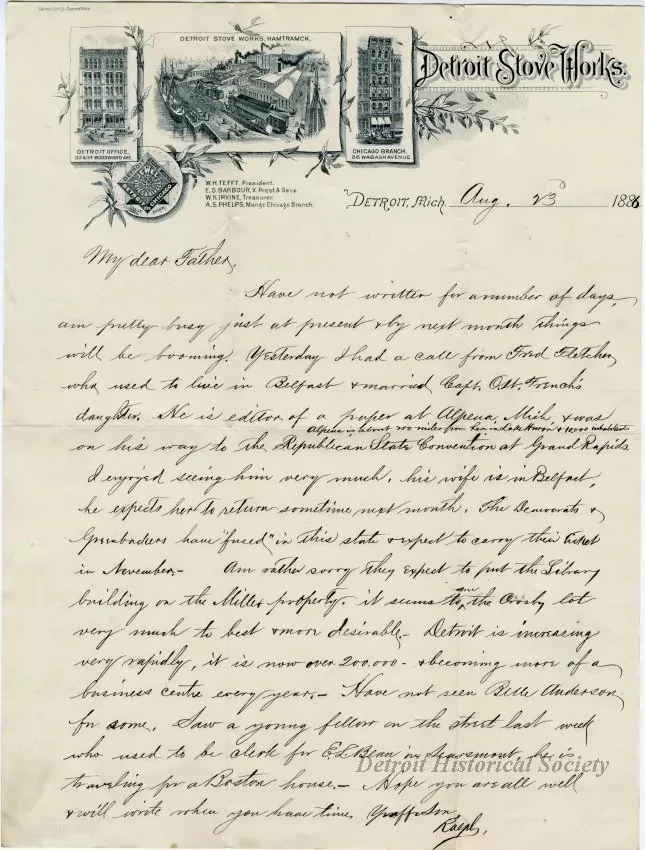 DETROIT STOVE WORKS, HAMTRAMCK.
Detroit Stove Works.
DETROIT OFFICE,
32 & 34 WOODWARD AVE.
CHICAGO BRANCH,
WABASH AVENUE.
JEWEL
W.H. TEFFT, President.
E.S. BARBOUR, V. Prest & Secy.
W.H. IRVINE, Treasurer.
A.S. PHELPS, Mangr Chicago Branch.
DETROIT, Mich. Aug. 23 1886
My dear Father,
Have not written for a number of days,
am pretty busy just at present & by next month things
will be booming. Yesterday I had a call from Fred Fletcher,
who used to live in Belfast & married Capt. French's
daughter. He is editor of a paper at Alpena, Mich. & was
Alpena is about 200 miles from here on Lake Huron & 10,000 inhabitants
on his way to the Republican State Convention at Grand Rapids.
I enjoyed seeing him very much, his wife is in Belfast,
he expects her to return sometime next month. The Democrats &
Greenbackers have "fused" in this state & expect to carry their ticket
in November.- Am rather sorry they expect to put the Library
building on the Miller property. it seems to me the Crosby lot
very much to best & more desirable.- Detroit is increasing
very rapidly, it is now over 200.000- & becoming more of a
business centre every year.- Have not seen Belle Anderson
for some. Saw a young fellow on the street last week
who used to be clerk for E.L. Bean in Searsmont, he is
traveling for a Boston house.- Hope you are all well
& will write when you have time. Yr aff son
Ralph.
Detroit Historical Society